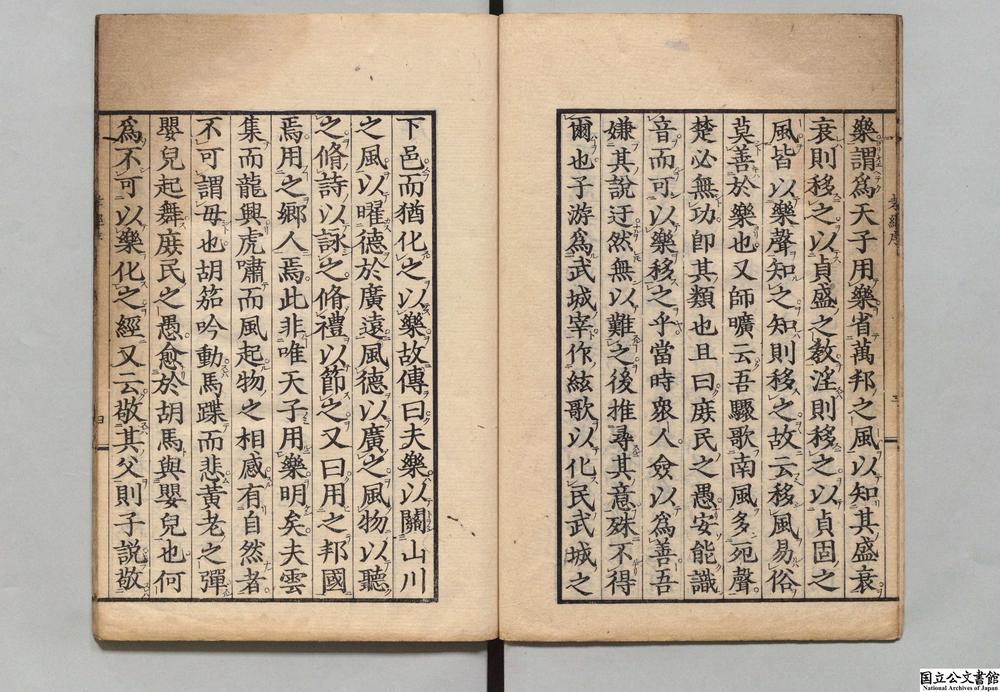 樂謂爲天子用樂省萬邦之風以知其盛衰
衰則移之以貞盛之教淫則移之以貞固之
風皆以樂聲知之知則移之故云移風易俗
莫善於樂也又師曠云吾驟歌南風多死聲
楚必無功卽其類也且曰庻民之愚安能識
音而可以樂移之乎當時衆人僉以爲善吾
嫌其說迂然無以難之後推尋其意殊不得
爾也子游爲武城宰作絃歌以化民武城之
下邑而猶化之以樂故傳曰夫樂以關山川
之風以曜德於廣遠風德以廣之風物以聽
之脩詩以詠之脩禮以節之又曰用之邦國
焉用之鄉人焉此非唯天子用樂明矣夫雲
集而龍興虎嘯而風起物之相感有自然者
不可謂毋也胡笳吟動馬蹀而悲黃老之彈
嬰兒起舞庻民之愚愈於胡馬與嬰兒也何
爲不可以樂化之經又云敬其父則子説敬
孝經序
三
孝經序
四
国立公文書館
National Archives of Japan